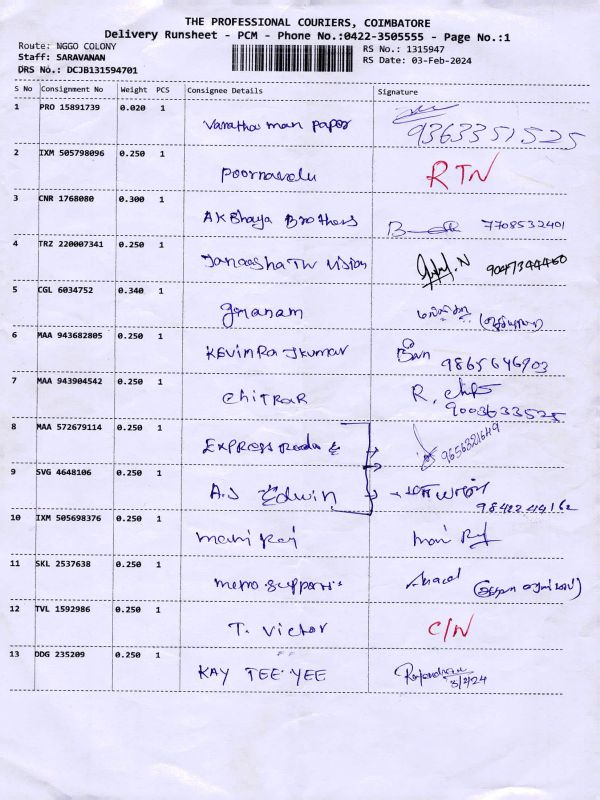 THE PROFESSIONAL COURIERS, COIMBATORE
Delivery Runsheet - PCM - Phone No.:0422-3505555 - Page No.:1
Route: NGGO COLONY
RS No.: 1315947
Staff: SARAVANAN
RS Date: 03-Feb-2024
DRS No.: DCJB131594701
S No Consignment No Weight PCS Consignee Details Signature
1 PRO 15891739 0.020 1 Varatha man paper 9363351525
2 IXM 505798096 0.250 1 Poornavelu RTN
3 CNR 1768080 0.300 1 AKBhaya Brothers 7708532401
4 TRZ 220007341 0.250 1 9047344460
5 CGL 6034752 0.340 1 gnanam
6 MAA 943682805 0.250 1 KEVIN RAJKUMAR 9865646903
7 MAA 943904542 0.250 1 CHITRAR R. 9003633525
8 MAA 572679114 0.250 1 EXPRESS 9656321649
9 SVG 4648106 0.250 1 A.J Edwin
10 IXM 505698376 0.250 1 mani Raj mani Raj
11 SKL 2537638 0.250 1 metro
12 TVL 1592986 0.250 1 T. Victor C/N
13 DDG 235209 0.250 1 KAY TEE YEE
3/2/24